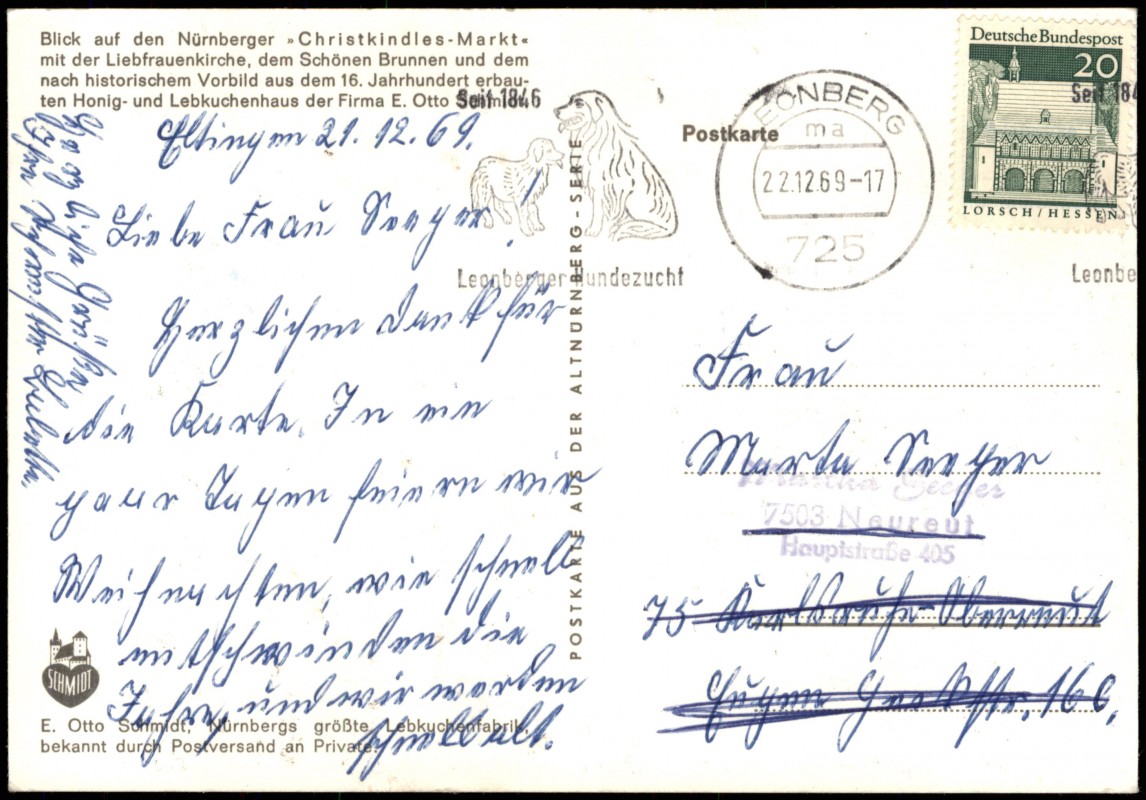 Blick auf den Nürnberger »Christkindles-Markt«
mit der Liebfrauenkirche, dem Schönen Brunnen und dem
nach historischem Vorbild aus dem 16. Jahrhundert erbau-
ten Honig- und Lebkuchenhaus der Firma E. Otto Schmidt.
Eltingen 21.12.69.
Liebe Frau Seeger!
Herzlichen Dank für
die Karte. In ein
paar Tagen feiern wir
Weihnachten, wie schnell
entschwinden die
Jahre, und wir werden
schnell alt.
Ganz liebe Grüße
SCHMIDT
E. Otto Schmidt, Nürnbergs größte Lebkuchenfabrik,
bekannt durch Postversand an Private.
POSTKARTE AUS DER ALTNÜRNBERG-SERIE
Seit 1846
Leonberger Hundezucht
Postkarte
LEONBERG
ma
22.12.69-17
725
Deutsche Bundespost
20
LORSCH/HESSEN
Seit 184
Leonbe
Frau
Marta Seeger
Seeger
7503 Neureut
Hauptstraße 405
75 Karlsruhe-Oberreut
Eugen Geckstr. 160,